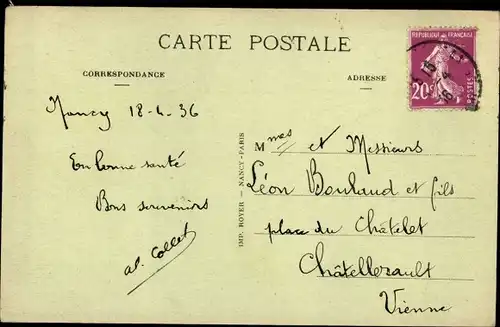 CARTE POSTALE
CORRESPONDANCE
ADRESSE
REPUBLIQUE FRANÇAISE
20c
POSTES
Nancy 18-4-36
En bonne santé
Bons souvenirs
al. Collet
IMP. ROYER — NANCY-PARIS
Mmes et Messieurs
Léon Boulaud et fils
place du Châtelet
Châtellerault
Vienne